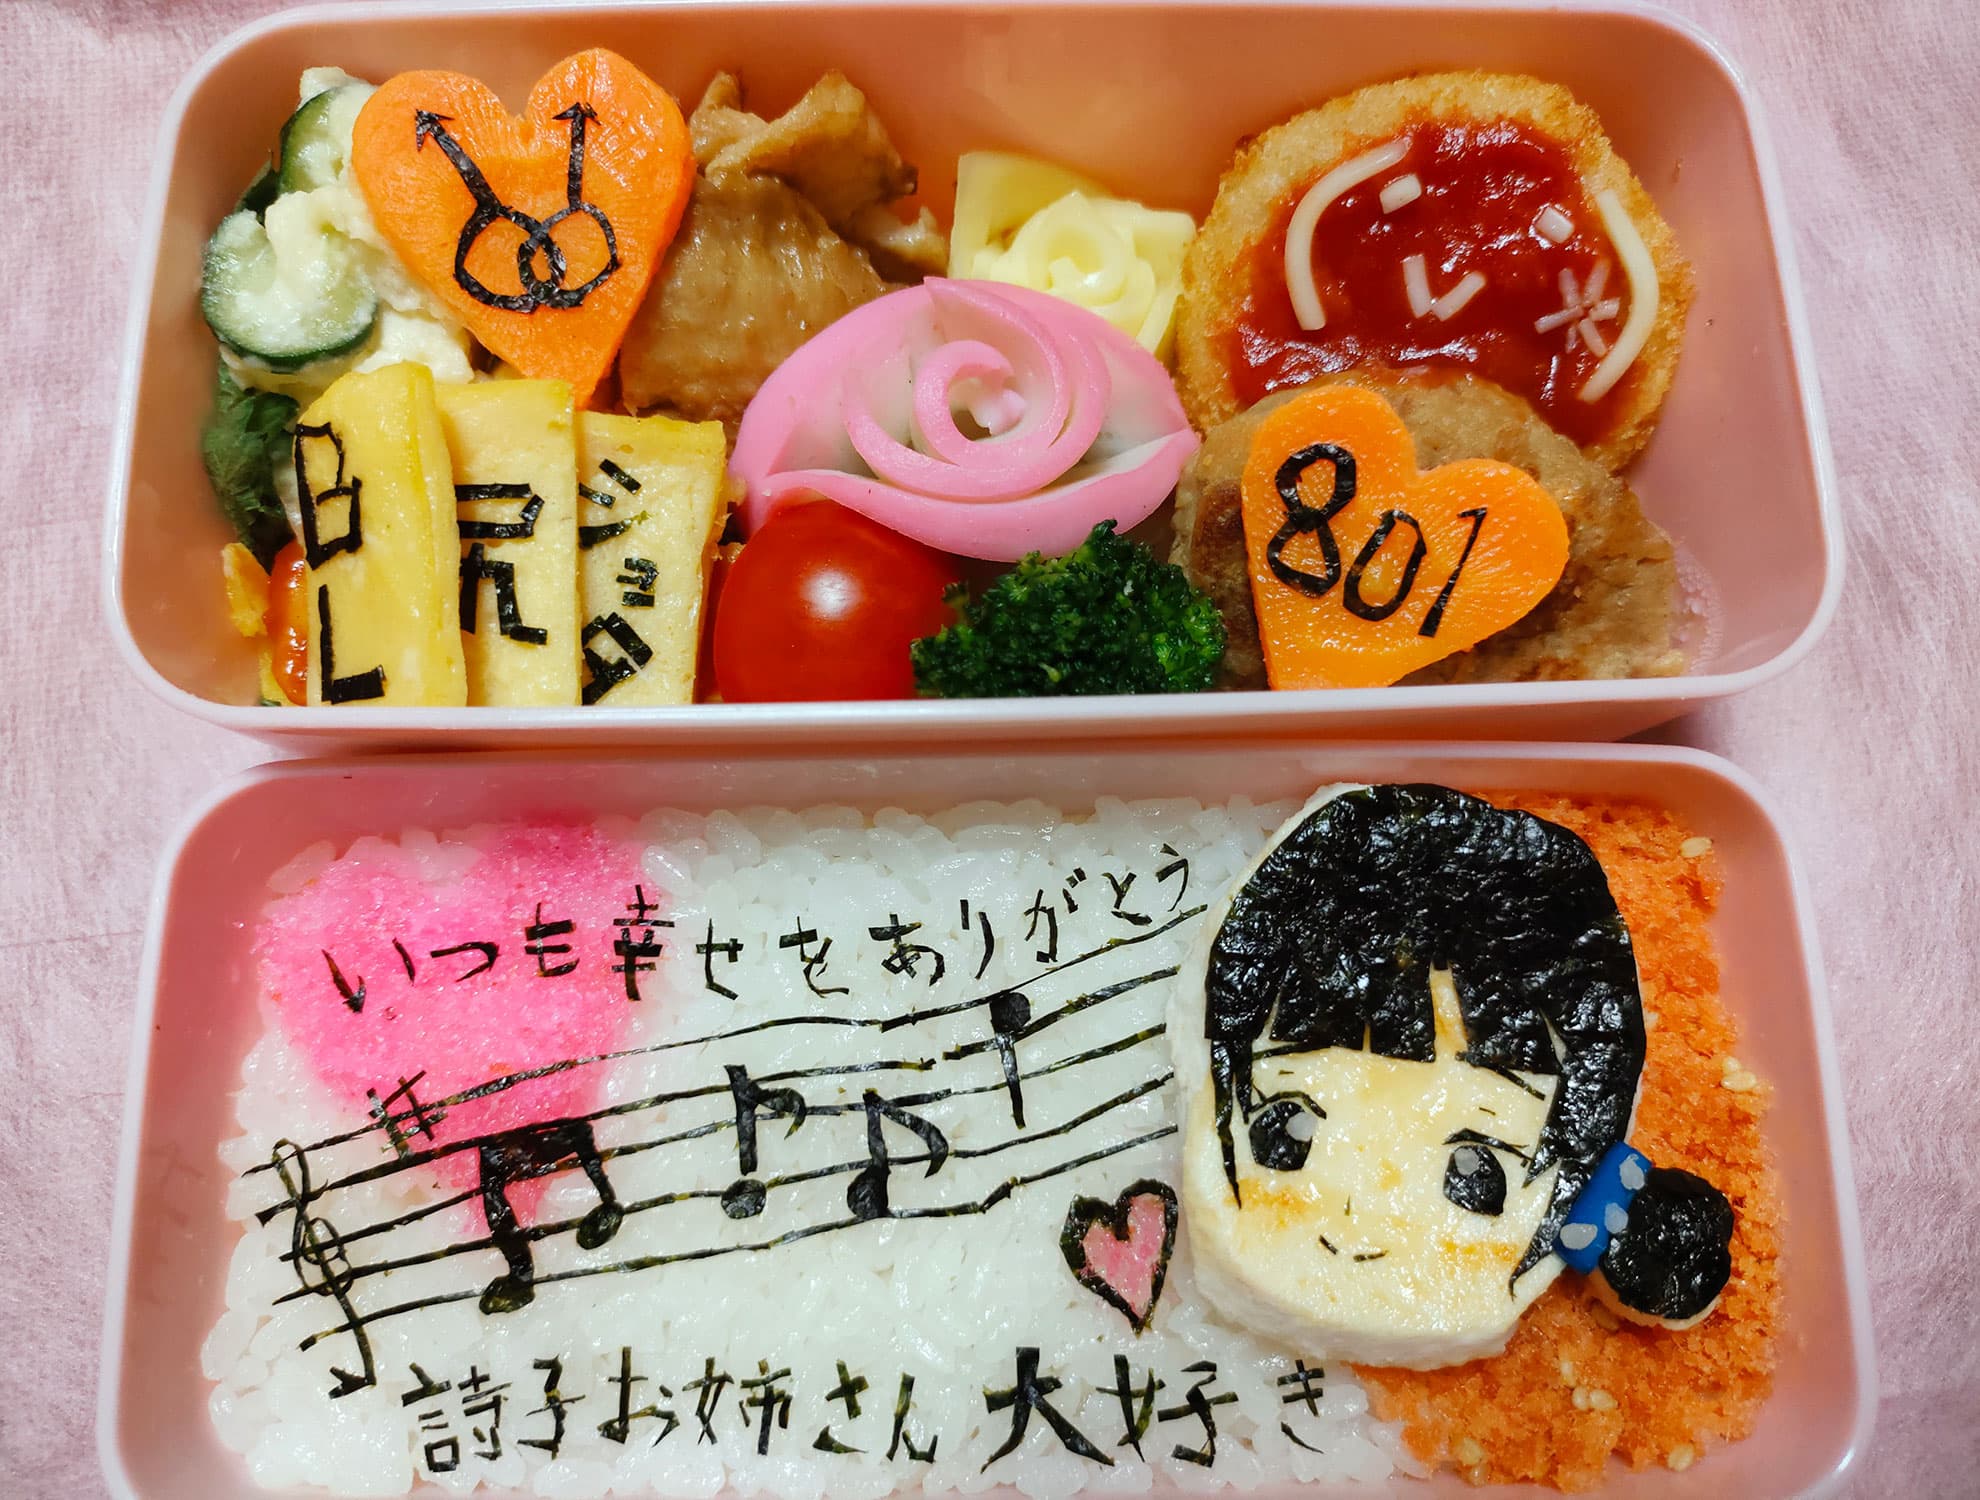 BL
尻
ジッダ
801
いつも幸せをありがとう
詩子お姉さん大好き